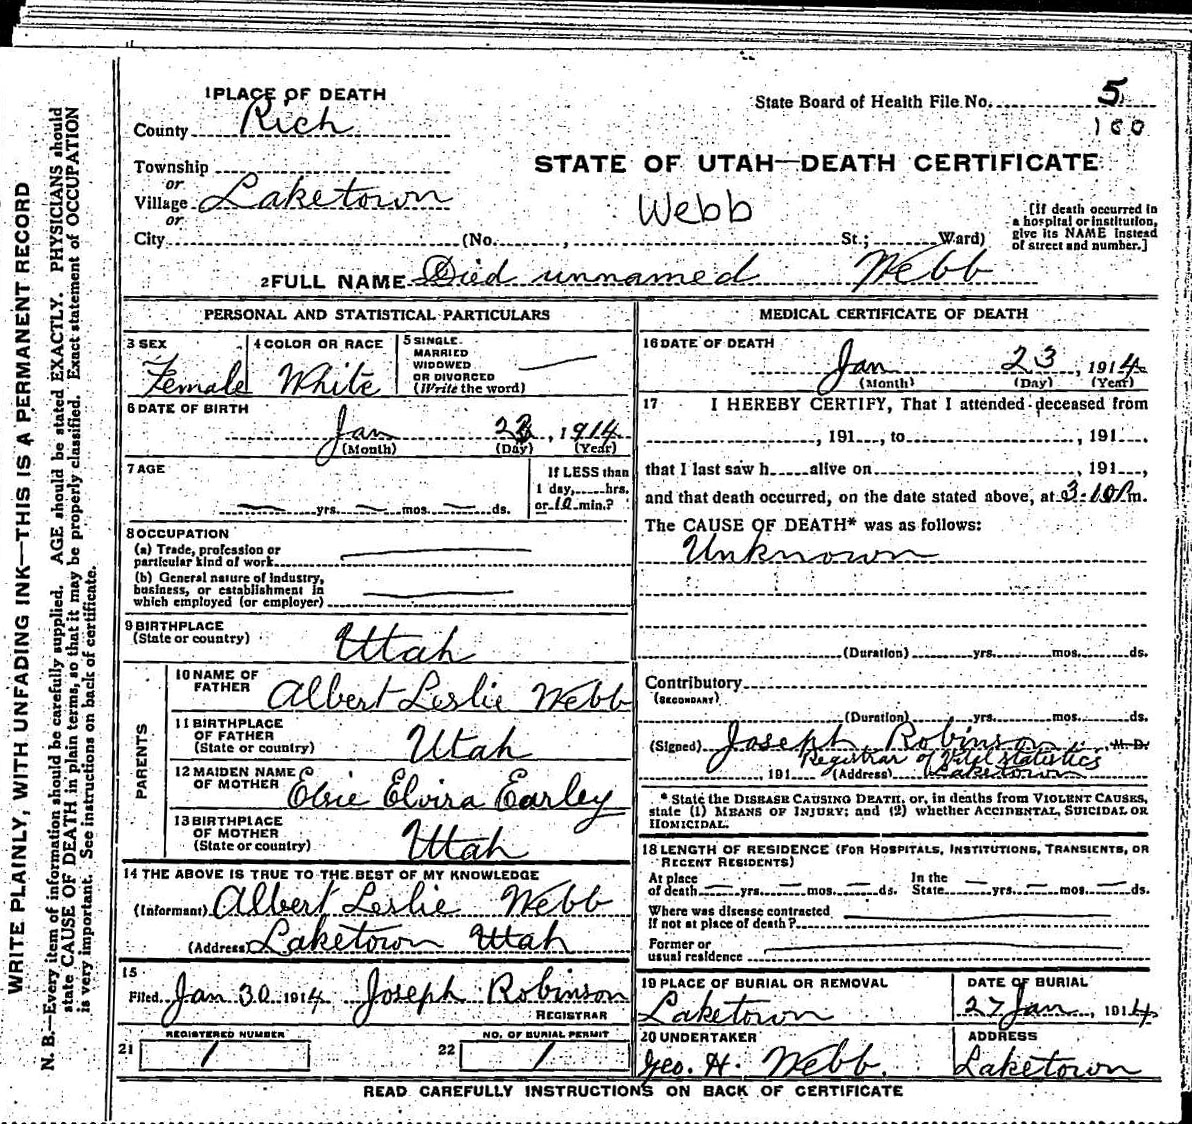 WRITE PLAINLY, WITH UNFADING INK—THIS IS A PERMANENT RECORD
N. B.—Every item of information should be carefully supplied. AGE should be stated EXACTLY. PHYSICIANS should
state CAUSE OF DEATH in plain terms, so that it may be properly classified. Exact statement of OCCUPATION
is very important. See instructions on back of certificate.
1 PLACE OF DEATH
County Rich
Township
or
Village Laketown
or
City (No. , St.; Ward)
State Board of Health File No. 5
100
STATE OF UTAH—DEATH CERTIFICATE
Webb
[If death occurred in
a hospital or institution,
give its NAME instead
of street and number.]
2 FULL NAME Died unnamed Webb
PERSONAL AND STATISTICAL PARTICULARS
3 SEX
Female
4 COLOR OR RACE
White
5 SINGLE
MARRIED
WIDOWED
OR DIVORCED
(Write the word)
6 DATE OF BIRTH
Jan 23, 1914
(Month) (Day) (Year)
7 AGE
yrs. mos. ds.
If LESS than
1 day, hrs.
or 10 min.?
8 OCCUPATION
(a) Trade, profession or
particular kind of work
(b) General nature of industry,
business, or establishment in
which employed (or employer)
9 BIRTHPLACE
(State or country)
Utah
PARENTS
10 NAME OF
FATHER Albert Leslie Webb
11 BIRTHPLACE
OF FATHER
(State or country) Utah
12 MAIDEN NAME
OF MOTHER Elsie Elvira Earley
13 BIRTHPLACE
OF MOTHER
(State or country) Utah
14 THE ABOVE IS TRUE TO THE BEST OF MY KNOWLEDGE
(Informant) Albert Leslie Webb
(Address) Laketown Utah
15
Filed Jan 30 1914 Joseph Robinson
REGISTRAR
REGISTERED NUMBER
21 1
NO. OF BURIAL PERMIT
22 1
MEDICAL CERTIFICATE OF DEATH
16 DATE OF DEATH
Jan 23, 1914
(Month) (Day) (Year)
17 I HEREBY CERTIFY, That I attended deceased from
, 191 , to , 191 .
that I last saw h alive on , 191 ,
and that death occurred, on the date stated above, at 3-10 P m.
The CAUSE OF DEATH* was as follows:
Unknown
(Duration) yrs. mos. ds.
Contributory
(SECONDARY)
(Duration) yrs. mos. ds.
(Signed) Joseph Robinson M. D.
Registrar of Vital Statistics
191 (Address) Laketown
* State the DISEASE CAUSING DEATH, or, in deaths from VIOLENT CAUSES,
state (1) MEANS OF INJURY; and (2) whether ACCIDENTAL, SUICIDAL OR
HOMICIDAL.
18 LENGTH OF RESIDENCE (FOR HOSPITALS, INSTITUTIONS, TRANSIENTS, OR
RECENT RESIDENTS)
At place
of death yrs. mos. ds.
In the
State yrs. mos. ds.
Where was disease contracted
if not at place of death?
Former or
usual residence
19 PLACE OF BURIAL OR REMOVAL
Laketown
DATE OF BURIAL
27 Jan, 1914
20 UNDERTAKER
Geo. H. Webb.
ADDRESS
Laketown
READ CAREFULLY INSTRUCTIONS ON BACK OF CERTIFICATE